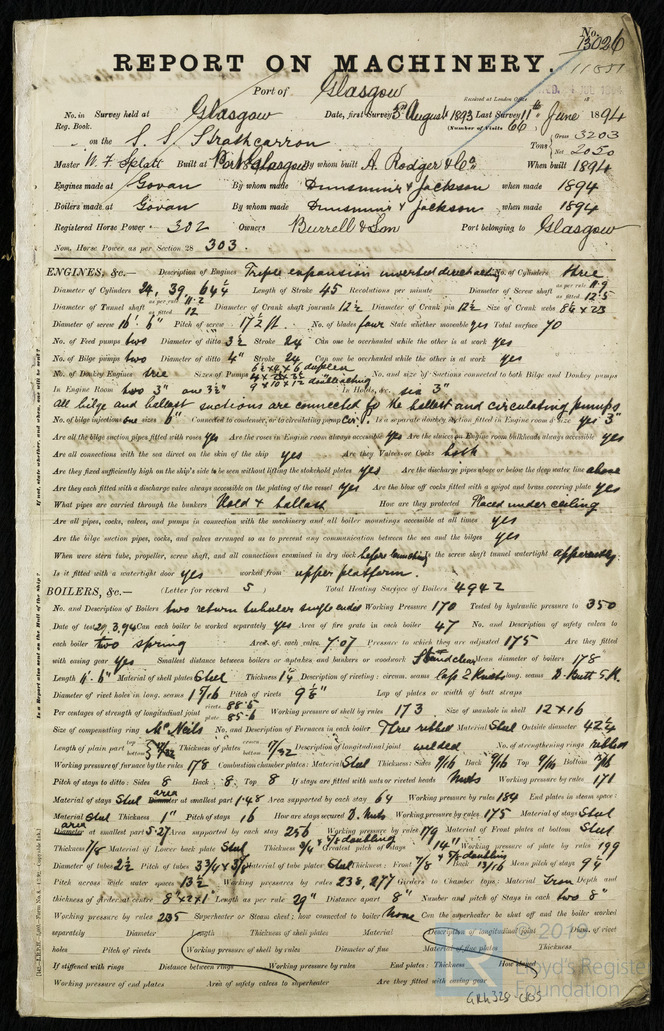 No. 13026
REPORT ON MACHINERY.
Port of Glasgow
Received at London Office
No. in Survey held at Glasgow Date, first Survey 5th August 1893 Last Survey 11th June 1894
Reg. Book. (Number of Visits 66)
on the S. S. Strathcarron Tons Gross 3203 Net 2050
Master W. F. Splatt Built at Port Glasgow By whom built A. Rodger & Co. When built 1894
Engines made at Govan By whom made Dunsmuir & Jackson when made 1894
Boilers made at Govan By whom made Dunsmuir & Jackson when made 1894
Registered Horse Power 302 Owners Burrell & Son Port belonging to Glasgow
Nom. Horse Power as per Section 28 303.
ENGINES, &c.— Description of Engines Triple expansion inverted direct acting No. of Cylinders three
Diameter of Cylinders 24, 39, 64½ Length of Stroke 45 Revolutions per minute Diameter of Screw shaft as per rule 11.9 as fitted 12.5
Diameter of Tunnel shaft as per rule 11.2 as fitted 12 Diameter of Crank shaft journals 12½ Diameter of Crank pin 12½ Size of Crank webs 8½ x 23
Diameter of screw 16'. 6" Pitch of screw 17½ ft. No. of blades four State whether moveable yes Total surface 70
No. of Feed pumps two Diameter of ditto 3½ Stroke 24 Can one be overhauled while the other is at work yes
No. of Bilge pumps two Diameter of ditto 4" Stroke 24 Can one be overhauled while the other is at work yes
No. of Donkey Engines three Sizes of Pumps 9 x 10 x 12 double acting No. and size of Suctions connected to both Bilge and Donkey pumps
In Engine Room two 3" one 3½" In Holds, &c. six 3"
All bilge and ballast suctions are connected to the ballast and circulating pumps
No. of bilge injections one sizes 6" Connected to condenser, or to circulating pump Cir. P. Is a separate donkey suction fitted in Engine room & size yes 3"
Are all the bilge suction pipes fitted with roses yes Are the roses in Engine room always accessible yes Are the sluices on Engine room bulkheads always accessible yes
Are all connections with the sea direct on the skin of the ship yes Are they Valves or Cocks both
Are they fixed sufficiently high on the ship's side to be seen without lifting the stokehold plates yes Are the discharge pipes above or below the deep water line above
Are they each fitted with a discharge valve always accessible on the plating of the vessel yes Are the blow off cocks fitted with a spigot and brass covering plate yes
What pipes are carried through the bunkers Hold & ballast How are they protected Placed under ceiling
Are all pipes, cocks, valves, and pumps in connection with the machinery and all boiler mountings accessible at all times yes
Are the bilge suction pipes, cocks, and valves arranged so as to prevent any communication between the sea and the bilges yes
When were stern tube, propeller, screw shaft, and all connections examined in dry dock before launching Is the screw shaft tunnel watertight apparently.
Is it fitted with a watertight door yes worked from upper platform.
BOILERS, &c.— (Letter for record S) Total Heating Surface of Boilers 4942
No. and Description of Boilers two return tubular single ended Working Pressure 170 Tested by hydraulic pressure to 350
Date of test 29.3.94 Can each boiler be worked separately yes Area of fire grate in each boiler 47 No. and Description of safety valves to
each boiler two spring Area of each valve 7.07 Pressure to which they are adjusted 175 Are they fitted
with easing gear yes Smallest distance between boilers or uptakes and bunkers or woodwork Stand clear Mean diameter of boilers 178
Material of shell plates Steel Thickness Description of riveting: circum. seams long. seams D. Butt S.R.
Diameter of rivet holes in long. seams 1 5/16 Pitch of rivets 9⅛" Lap of plates or width of butt straps
Per centages of strength of longitudinal joint rivets 88.5 plate 85.6 Working pressure of shell by rules 173 Size of manhole in shell 12 x 16
Size of compensating ring McNeils No. and Description of Furnaces in each boiler Three ribbed Material Steel Outside diameter 42¼
Length of plain part top bottom Thickness of plates crown bottom 17/32 Description of longitudinal joint welded No. of strengthening rings ribbed
Working pressure of furnace by the rules 178 Combustion chamber plates: Material Steel Thickness: Sides 9/16 Back 9/16 Top 9/16 Bottom
Pitch of stays to ditto: Sides 8 Back 8 Top 8 If stays are fitted with nuts or riveted heads Nuts Working pressure by rules 171
Material of stays Steel Diameter area at smallest part 1.48 Area supported by each stay 64 Working pressure by rules 184 End plates in steam space:
Material Steel Thickness 1" Pitch of stays 16 How are stays secured D. Nuts Working pressure by rules 175 Material of stays Steel
area Diameter at smallest part 5.27 Area supported by each stay 256 Working pressure by rules 179 Material of Front plates at bottom Steel
Thickness 7/8 Material of Lower back plate Steel Thickness Greatest pitch of stays 14" Working pressure of plate by rules 199
Diameter of tubes 2½ Pitch of tubes Material of tube plates Steel Thickness: Front 7/8 Back 13/16 Mean pitch of stays
Pitch across wide water spaces 13½ Working pressures by rules 238, 277 Girders to Chamber tops: Material Iron Depth and
thickness of girder at centre 8" x 2 x 1 Length as per rule 29" Distance apart 8" Number and pitch of Stays in each two 8"
Working pressure by rules 235 Superheater or Steam chest; how connected to boiler None Can the superheater be shut off and the boiler worked
separately Diameter Length Thickness of shell plates Material Description of longitudinal joint Diam. of rivet
holes Pitch of rivets Working pressure of shell by rules Diameter of flue Material of flue plates Thickness
If stiffened with rings Distance between rings Working pressure by rules End plates: Thickness How stayed
Working pressure of end plates Area of safety valves to superheater Are they fitted with easing gear
Lloyd's Register
Foundation